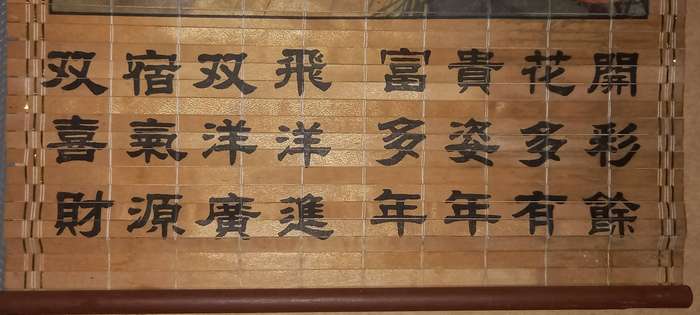 双宿双飛 富貴花開
喜氣洋洋 多姿多彩
財源廣進 年年有餘